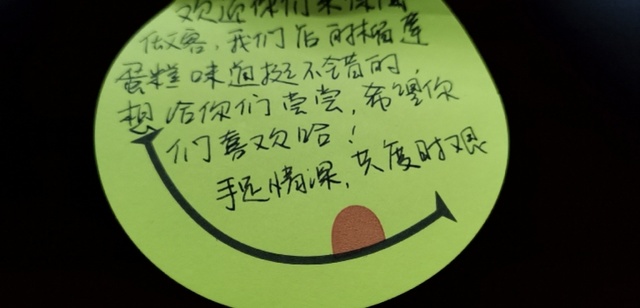 欢迎你们来
做客，我们榴莲
蛋糕味道挺不错的，
想给你们尝尝，希望你
们喜欢哈！
手足情深，共度时艰